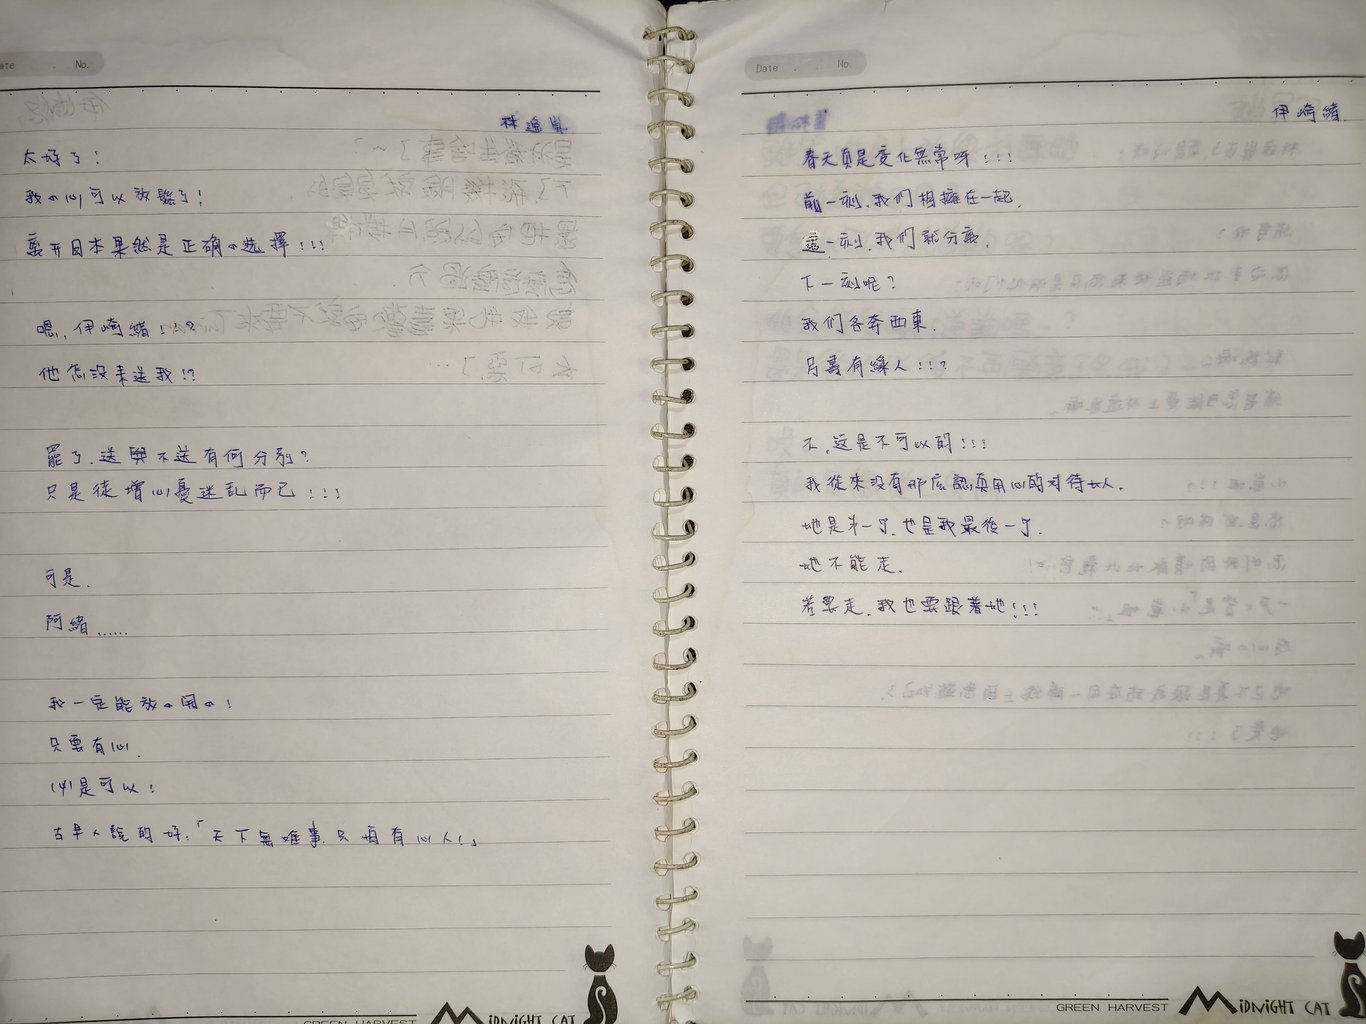 ate . . No.
林逸嵐
太好了!
我の心可以放鬆了!
离开日本果然是正确の选擇!!!
嗯,伊崎緒!!?
他怎沒來送我!?
罷了.送與不送有何分别?
只是徒增心憂迷乱而已!!!
可是.
阿緒......
我一定能放の開の!
只要有心.
什是可以!
古早人說的好:「天下無难事.只怕有心人!」
GREEN HARVEST MIDNIGHT CAT
Date . . No.
伊崎緒.
春天真是变化無常呀!!!
前一刻.我们相擁在一起.
這一刻.我们就分离.
下一刻呢?
我们各奔西東.
另尋有緣人!!?
不,这是不可以的!!!
我從來没有那么認真用心的对待女人.
她是第一了.也是我最後一了.
她不能走.
若要走.我也要跟着她!!!
GREEN HARVEST MIDNIGHT CAT